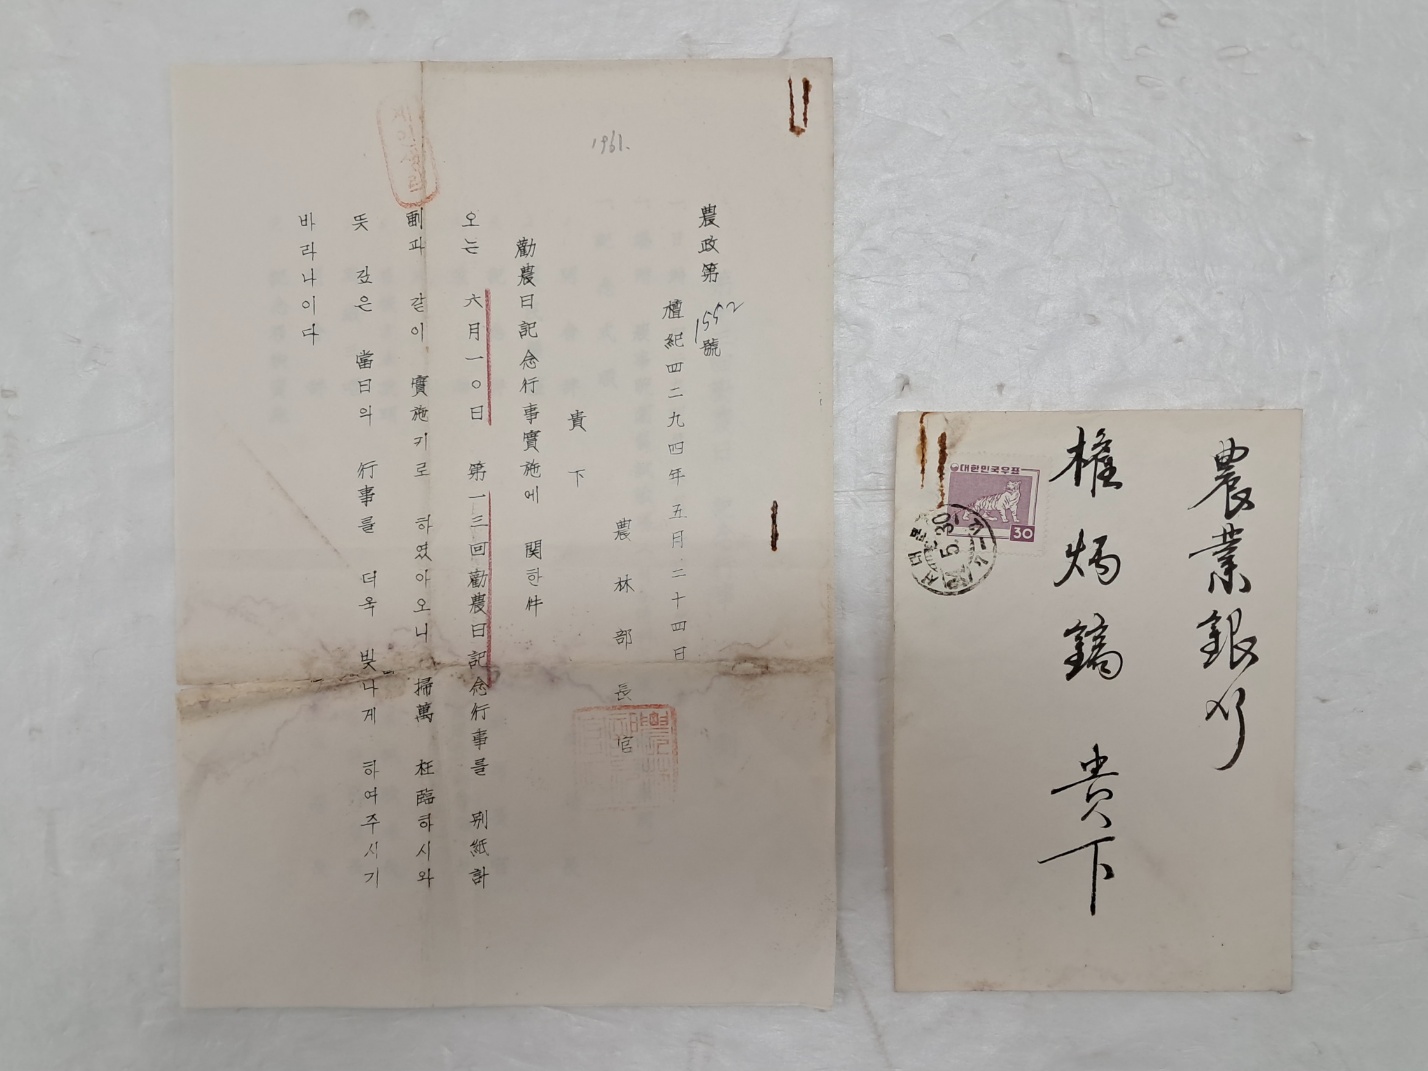 1961.
農政第1552號
檀紀四二九四年五月二十四日
農林部長官
貴下
勸農日記念行事實施에 関한件
오는 六月一○日 第一三回勸農日記念行事를 別紙計
劃과 같이 實施키로 하였아오니 掃萬 枉臨하시와
뜻 깊은 當日의 行事를 더욱 빛나게 하여주시기
바라나이다
農業銀行
権炳鎬 貴下
대한민국우표
30
5.30